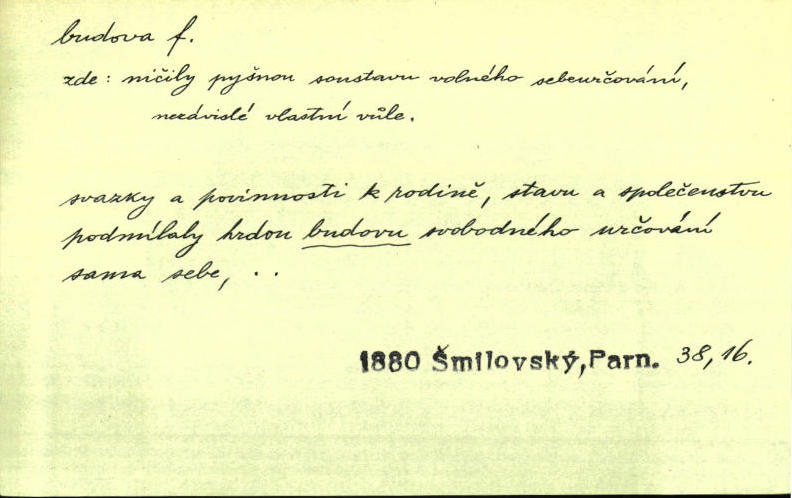 budova f.
zde: ničily pyšnou soustavu volného sebeurčování,
nezávislé vlastní vůle.
svazky a povinnosti k rodině, stavu a společenstvu
podmílaly hrdou budovu svobodného určování
sama sebe, ..
1880 Šmilovský, Parn. 38,16.